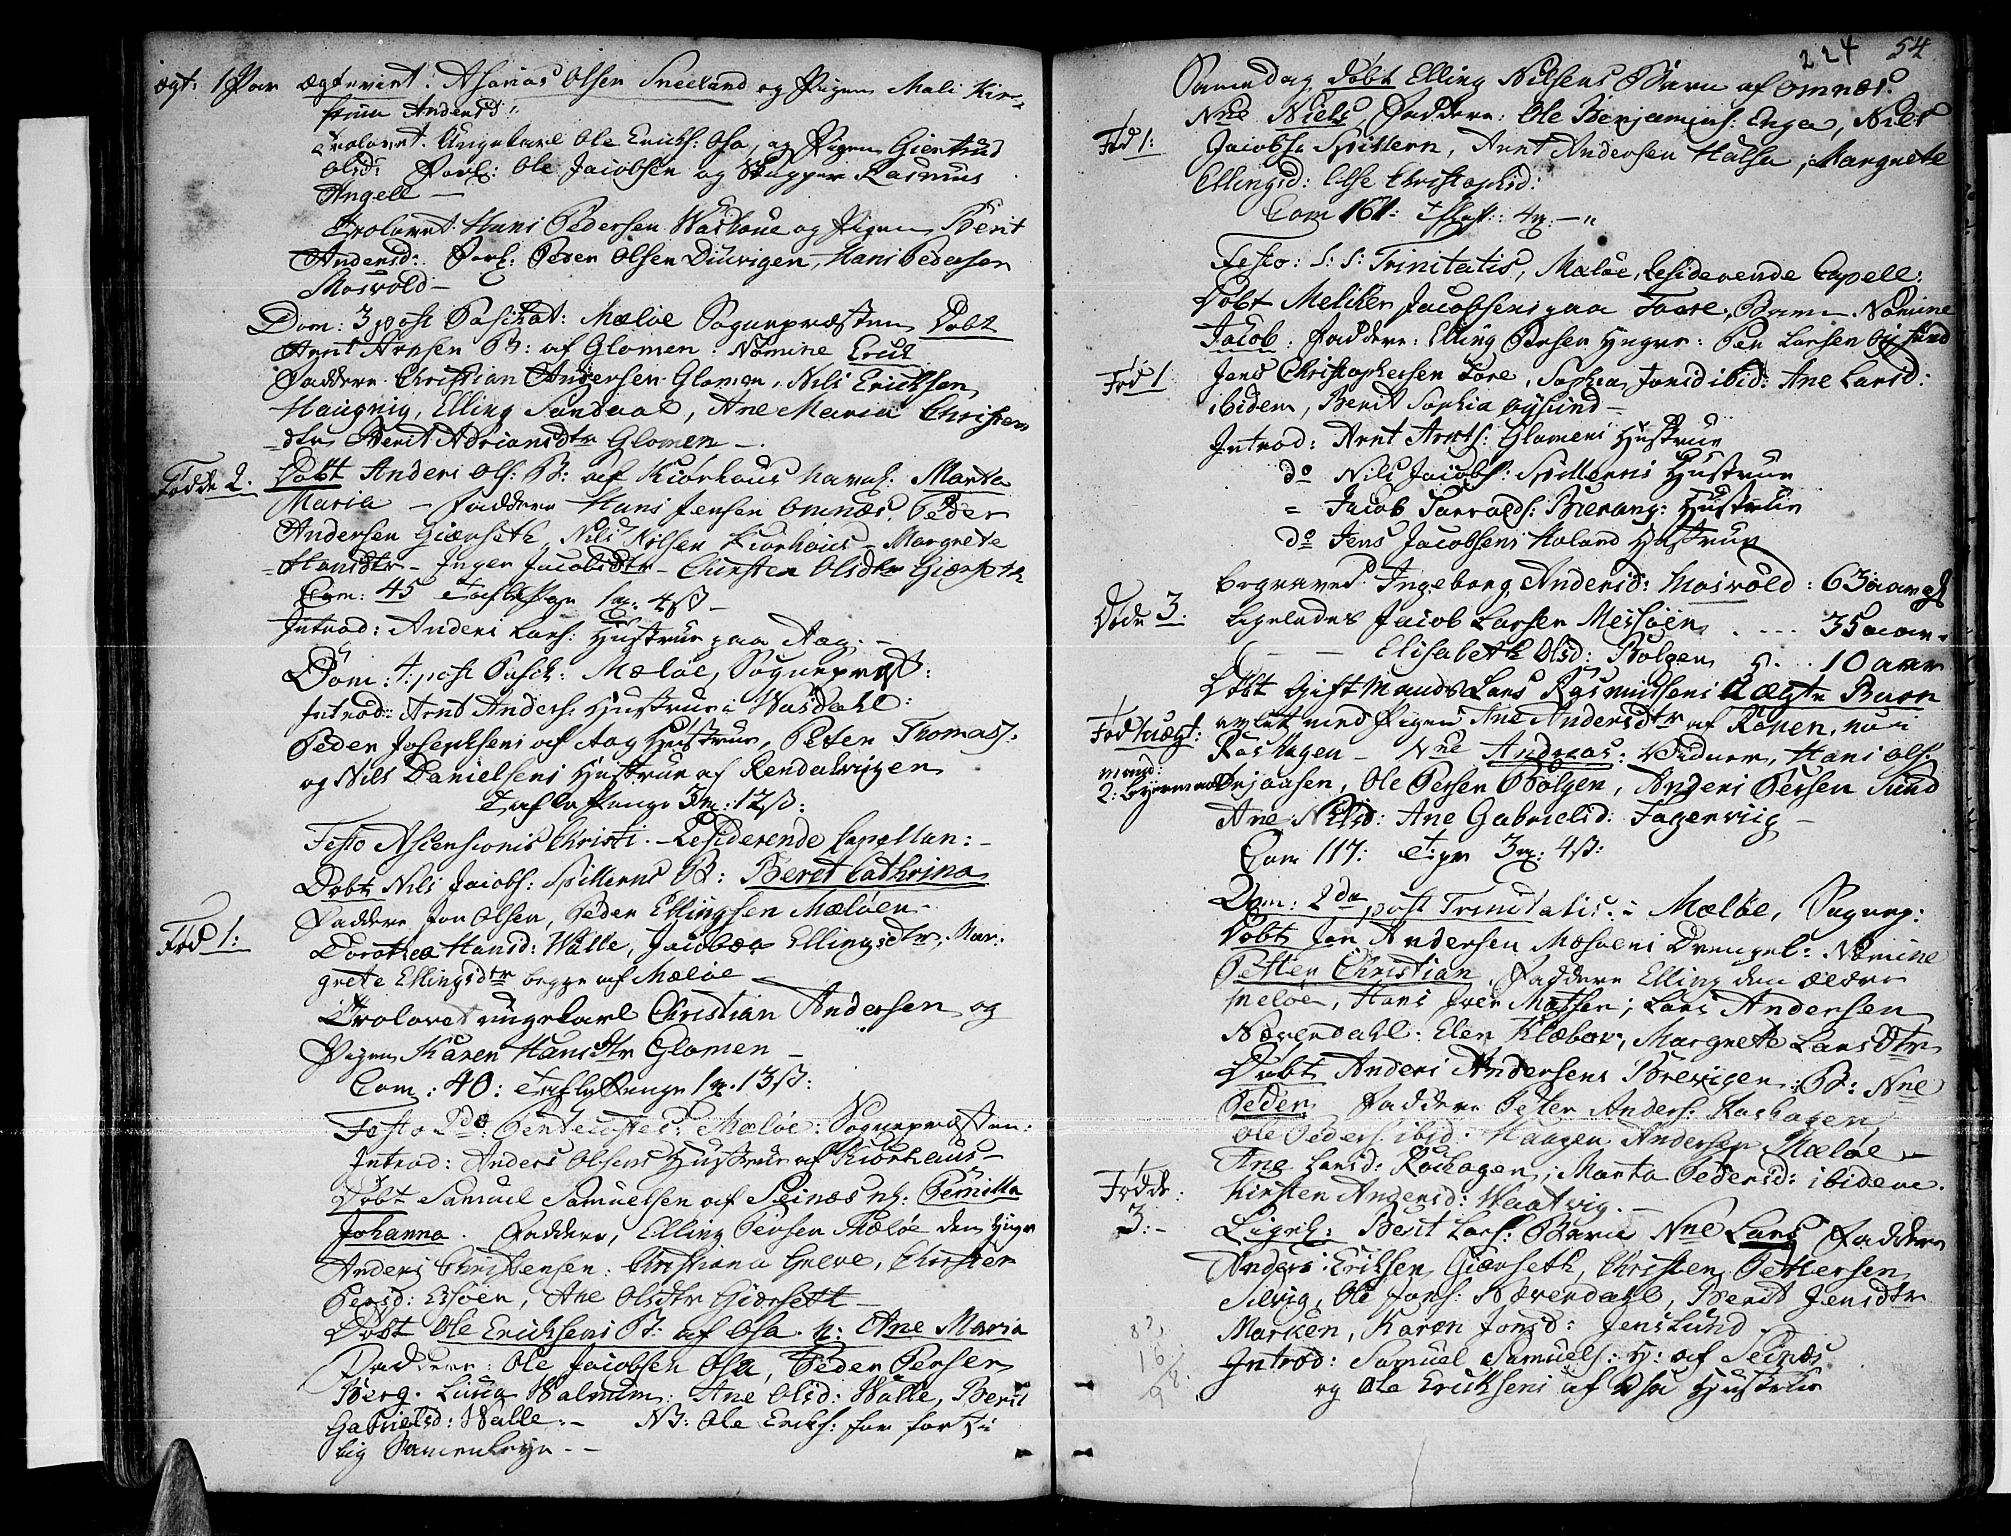 ægt: 1 Par ægteviet: Asarias Olsen Sneeland og Pigen Mali Kir-
stina Andersd:
Trolovet. Ungekarl Ole Erichs: Osa, og Pigen Giertrud
Olsd: Forl: Ole Jacobsen og Skipper Rasmus
Angell —
Trolovet Hans Pedersen og Pigen Berit
Andersd: Forl: Peder Olsen Diurigen, Hans Pedersen
Mosvold —
Dom: 3 post Paschat: Meløe Sognepræsten Døbt
Arnt Arnsen B: af Glomen: Nomine Erich
Faddere Christian Andersen Glomen, Nils Ericksen
Haugvig, Elling Sandaa, Ane Maria Christens
dtr Berit Adriansdtr Glomen —
Fødde 2. Døbt Anders Ols: B: af Kiørhaus navnl: Marta
Maria — Faddere Hans Jensen Omnæs, Peder
Andersen Giærseth, Nils Nilsen Kiørhaus — Margrete
Hansdtr — Inger Jacobsdtr — Kirsten Olsdtr Giærseth
Com: 45 Taflepenge 1 m: 4 s —
Introd: Anders Lars: Hustrue paa Aag: —
Dom: 4 post Pasch: Meløe, Sognepræst:
Introd: Arnt Anders: Hustrue i Wasdahl:
Peder Josephsens af Aag Hustrue, Peter Thomass:
og Nils Danielsens Hustrue af Rendalvigen
Taflepenge 3 m: 12 s:
Festo Ascensionis Christi — Residerende Capellan: —
Døbt Nils Jacobs: Spilderns B: Beret Cathrina
Faddere Jon Olsen, Peder Ellingsen Meløen —
Fød 1: Dorothea Hansd: Walle, Jacobæa Ellingsdtr, Mar-
grete Ellingsdtr begge af Meløe —
Trolovet ungekarl Christian Andersen og
Pigen Karen Hansdtr Glomen —
Com: 40: Taflepenge 1 m. 13 s:
Festo 2de Pentecostes: Meløe: Sognepræsten:
Introd: Anders Olsens Hustrue af Kiørhaus —
Døbt Samuel Samuelsen af Seinæs nl: Pernilla
Johanna. Faddere, Elling Persen Meløe den yngre
Anders Christensen: Christiana Greve, Kirsten
Persd: Essøen, Ane Olsdtr Giærseth —
Døbt Ole Ericksens B: af Osa. N: Ane Maria
Faddere: Ole Jacobsen Osa, Peder Persen
Berg. Lucia Walnum: Ane Olsd: Walle, Berit
Gabrielsd: Walle: — NB: Ole Ericks: for forti-
lig Samenleye —
224 54
Samedag døbt Elling Nilsens Barn af Omnæs.
Nne Niels, Faddere: Ole Benjamins: Enga, Niels
Fød 1: Jacobsen Spildern, Arnt Andersen Halsa, Margrete
Ellingsd: Else Christophsd:
Com 161: Tflp: 4 m: —
Festo: S: S: Trinitatis, Meløe, Residerende Capell:
Døbt Melcher Jacobsens paa Tore, Barn. Nomine
Jacob: Faddere: Elling Persen yngre: Per Larsen Øysund
Fød 1 Jens Christophersen Tore, Sophia Jonsd ibid: Ane Larsd:
ibidem, Berit Sophia Øysund —
Introd: Arnt Arnts: Glomens Hustrue
do Nils Jacobs: Spilderns Hustrue
= Jacob Torvalds: Bierang: Hustrue
do Jens Jacobsens Holand Hustrue
begravet Ingeborg Andersd: Mosvold: 63 aar gl
Døde 3: ligeledes Jacob Larsen Messøen . --- 35 aar
— — Elisabeth Olsd: Bolgen . . . 10 aar
Døbt Gift Mands Lars Rasmussens Uægte Barn
Fød 1 uægt: avlet med Pigen Ane Andersdtr af Ronen, nu i
Røshagen — Nne Andreas: Vidner, Hans Ols:
Ørjaasen, Ole Persen Bolgen, Anders Persen Sund
Ane Nilsd: Ane Gabrielsd: Fagerviig —
Com 117: T: pr 3 m: 4 s:
Dom: 2da post Trinitatis: i Meløe, Sognep:
Døbt Jon Andersen Mesøens Drengeb: Nomine
Petter Christian, Faddere Elling den ældre
Meløe, Hans Iver Matsen; Lars Andersen
Næverdahl: Elen Klæboe, Margrete Larsdtr
Døbt Anders Andersens Brevigen: B: Nne
Peder, Faddere Peter Anders: Røshagen
Ole Peders: ibid: Haagen Andersen Meløe —
Ane Larsd: Røshagen, Marta Pedersd: ibidem.
Fødde: Kirsten Andersd: Waatvig. —
3: — Ligel: Berit Lars: Barn Nne Lars Faddere
Anders Eriksen Giærseth, Christen Pettersen
Selvig, Ole Jons: Næverdahl, Berit Jensdtr
Marken, Karen Jonsd: Jenslund
Introd: Samuel Samuels: H: af Seinæs
og Ole Ericksens af Osa Hustrue